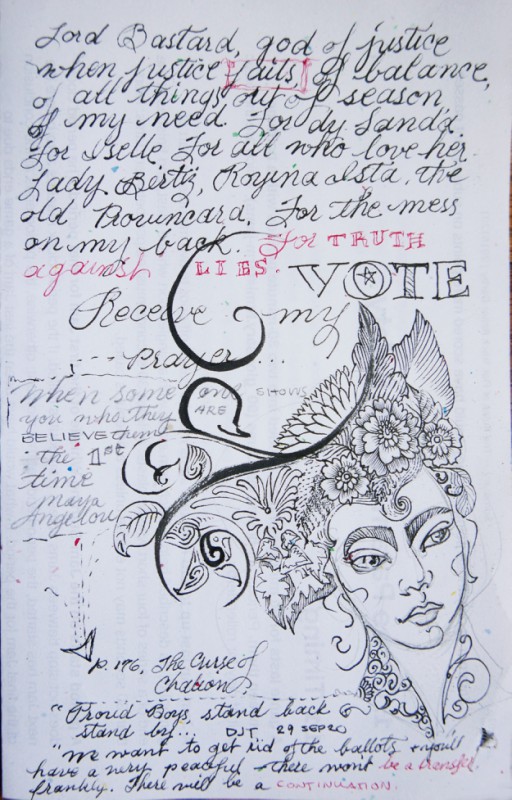 Lord Bastard, god of justice
when justice fails, of balance,
of all things out of season,
of my need. For dy Sanda.
For Iselle. For all who love her.
Lady Bertiz, Royina Ista, the
old Provincara. For the mess
on my back. For TRUTH
against LIES. VOTE
Receive my
prayer...
When some one SHOWS
you who they ARE
BELIEVE them
the 1st
time
Maya
Angelou
p. 176, The Curse of
Chalion.
"Proud Boys, stand back &
stand by... DJT 29 SEP 20
"We want to get rid of the ballots & you'll
have a very peaceful - there won't be a transfer,
frankly. There will be a CONTINUATION.